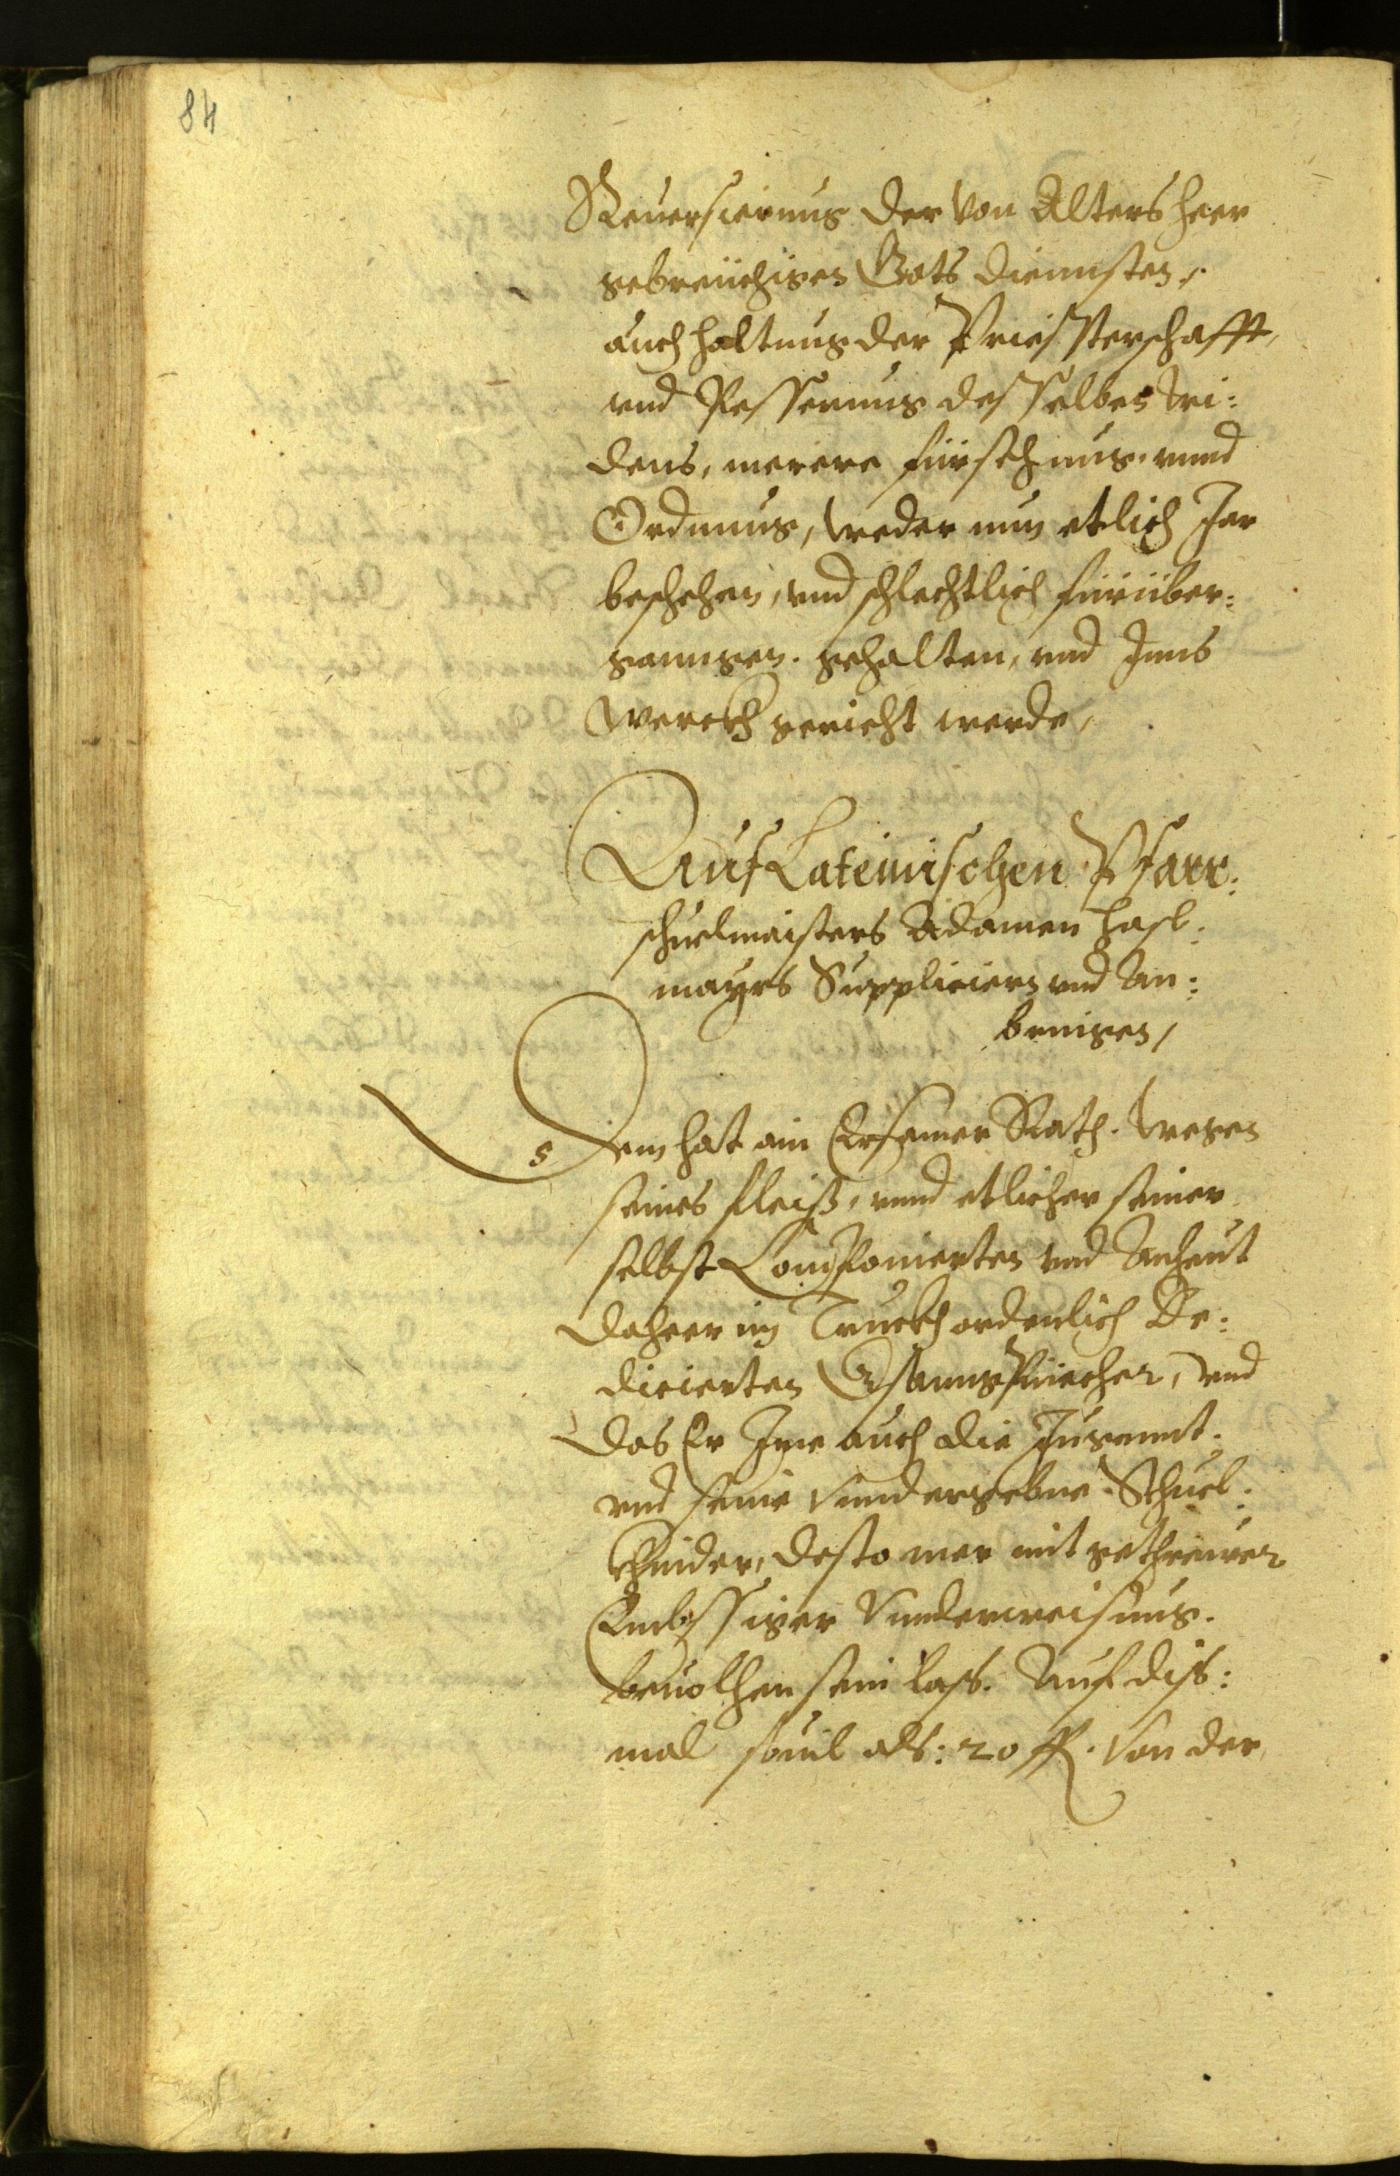 84
Reuersierung der von Alters heer
gebreüchigen Gots diennsten,
auch haltung der Priessterschafft,
vnd Pesserung desselben
dens, merere fürsehung vnnd
Ordnung, weder nun etlich Jar
beschehen, vnd schlechtlich fürüber:
ganngen. gehalten, vnd Inns
Werckh gericht werde,
Auf Lateinischen Pfarr:
schuelmaisters Adamen Hasl:
mayrs Suppliciern vnd An:
bringen,
Dem hat ain Ersamer Rath. wegen
seines fleiß, vnnd etlicher seiner
selbst Componierten vnd Anheut
daheer in Truckh ordenlich De:
dicierten Gsanngpüecher, vnd
das Er Ime auch die Jugennt.
vnd seine vnndergebne Schuel:
Khinder, desto mer mit gethreuer
Embssiger vnnderweisung.
beuolhen sein lass. Auf diss:
mal souil als: 20 fl. von der